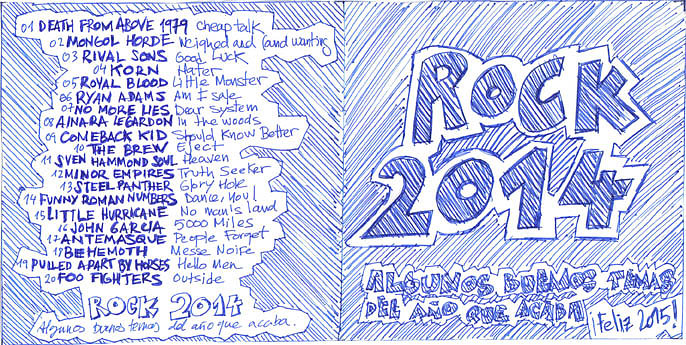 01 DEATH FROM ABOVE 1979 cheap talk
02 MONGOL HORDE Weighed and found wanting
03 RIVAL SONS Good Luck
04 KORN Hater
05 ROYAL BLOOD Little Monster
06 RYAN ADAMS Am I safe
07 NO MORE LIES Dear system
08 AINARA LEGARDON In the woods
09 COMEBACK KID Should Know Better
10 THE BREW Eject
11 SVEN HAMMOND SOUL Heaven
12 MINOR EMPIRES Truth Seeker
13 STEEL PANTHER Glory Hole
14 FUNNY ROMAN NUMBERS Dance, You!
15 LITTLE HURRICANE No man's land
16 JOHN GARCIA 5000 Miles
17 ANTEMASQUE People Forget
18 BEHEMOTH Messe Noire
19 PULLED APART BY HORSES Hello Men
20 FOO FIGHTERS Outside
ROCK 2014
Algunos buenos temas del año que acaba.
ROCK
2014
ALGUNOS BUENOS TEMAS
DEL AÑO QUE ACABA
¡Feliz 2015!